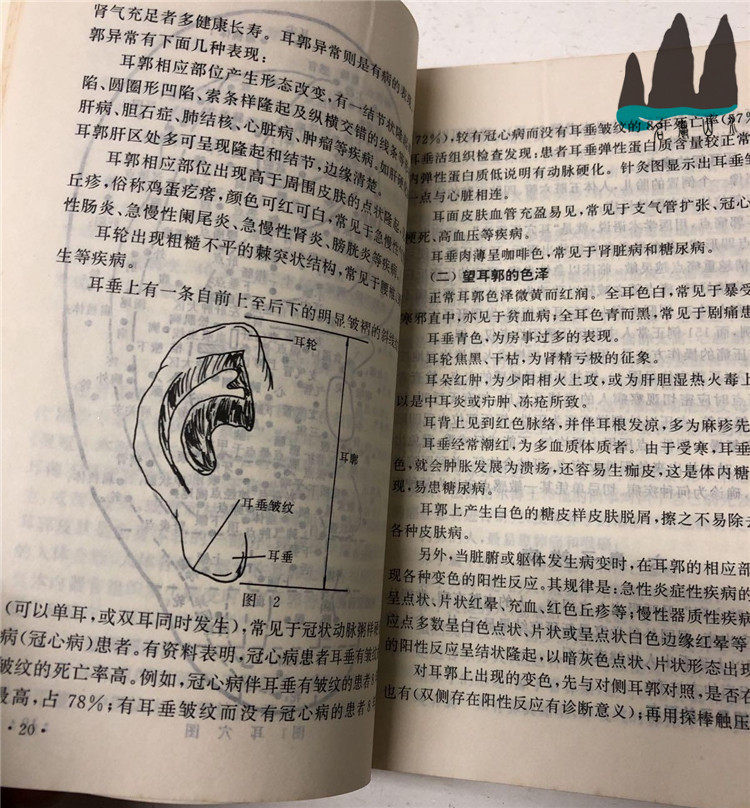 肾气充足者多健康长寿。耳郭异常则是有病的表现
郭异常有下面几种表现：
耳郭相应部位产生形态改变，有一结节状隆起
陷、圆圈形凹陷、索条样隆起及纵横交错的线条等
肝病、胆石症、肺结核、心脏病、肿瘤等疾病，如肝
耳郭肝区处多可呈现隆起和结节，边缘清楚。
耳郭相应部位出现高于周围皮肤的点状隆起
丘疹，俗称鸡蛋疙瘩，颜色可红可白，常见于急慢性
性肠炎、急慢性阑尾炎、急慢性肾炎、膀胱炎等疾病
耳轮出现粗糙不平的棘突状结构，常见于腰椎
生等疾病。
耳垂上有一条自前上至后下的明显皱褶的斜线
耳轮
耳垂皱纹
耳垂
图 2
(可以单耳，或双耳同时发生)，常见于冠状动脉粥样硬
病(冠心病)患者。有资料表明，冠心病患者耳垂有皱纹
皱纹的死亡率高。例如，冠心病伴耳垂有皱纹的患者8年
最高，占 78％；有耳垂皱纹而没有冠心病的患者 8 年
·20·
72％)，较有冠心病而没有耳垂皱纹的 8 年死亡率(37％
耳垂活组织检查发现：患者耳垂弹性蛋白质含量较正常
内弹性蛋白质低说明有动脉硬化。针灸图显示出耳垂皱
一点与心脏相连。
耳面皮肤血管充盈易见，常见于支气管扩张、冠心
梗死、高血压等疾病。
耳垂肉薄呈咖啡色，常见于肾脏病和糖尿病。
(二) 望耳郭的色泽
正常耳郭色泽微黄而红润。全耳色白，常见于暴受
寒邪直中，亦见于贫血病；全耳色青而黑，常见于剧痛患
耳垂青色，为房事过多的表现。
耳轮焦黑、干枯，为肾精亏极的征象。
耳朵红肿，为少阳相火上攻，或为肝胆湿热火毒上
以是中耳炎或疖肿、冻疮所致。
耳背上见到红色脉络，并伴耳根发凉，多为麻疹先
耳垂经常潮红，为多血质体质者。由于受寒，耳垂
色，就会肿胀发展为溃疡，还容易生痂皮，这是体内糖
现，易患糖尿病。
耳郭上产生白色的糠皮样皮肤脱屑，擦之不易除去
各种皮肤病。
另外，当脏腑或躯体发生病变时，在耳郭的相应部
现各种变色的阳性反应。其规律是：急性炎症性疾病的
呈点状、片状红晕、充血、红色丘疹等；慢性器质性疾病
应点多数呈白色点状、片状或呈点状白色边缘红晕等
的阳性反应呈结状隆起，以暗灰色点状、片状形态出现
对耳郭上出现的变色，先与对侧耳郭对照，是否在
也有(双侧存在阳性反应有诊断意义)；再用探棒触压